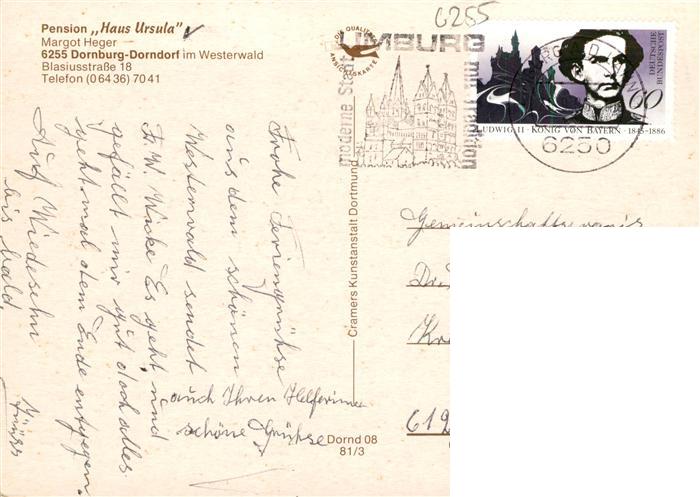 6255
Pension „Haus Ursula"
Margot Heger
6255 Dornburg-Dorndorf im Westerwald
Blasiusstraße 18
Telefon (0 64 36) 70 41
DIE QUALITÄTS
ANSICHTSKARTE
LIMBURG
moderne Stadt
mit Tradition
6250
DEUTSCHE
BUNDESPOST
60
LUDWIG II · KÖNIG VON BAYERN · 1845-1886
Frohe Feriengrüße
aus dem schönen
Westerwald sendet
F. W. Es geht und
gefällt mir gut doch alles
geht mal dem Ende entgegen.
Auf Wiedersehn
bis bald
auch Ihren Helferinnen
schöne Grüße
Cramers Kunstanstalt Dortmund
Dornd 08
81/3
Gemeinschaftspraxis
Dr.
619